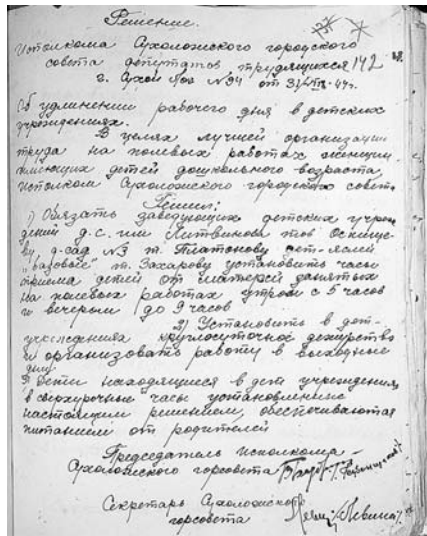 Решение.
Исполкома Сухоложского городского
совета депутатов трудящихся 142
г. Сухой Лог №94 от
Об удлинении рабочего дня в детских
учреждениях.
В целях лучшей организации
труда на полевых работах женщин
имеющих детей дошкольного возраста
исполком Сухоложского городского совета
Решил:
1) Обязать заведующих детских учреж
дений д.с. им Литвинова тов
д-сад №3 т. Платонову дет-яслей
"базовые" т. Захарову установить часы
приема детей от матерей занятых
на полевых работах утром с 5 часов
и вечером до 9 часов
2) Установить в дет-
учреждениях круглосуточное дежурство
и организовать работу в выходные
дни.
дети находящиеся в дет учреждениях
в сверхурочные часы установленные
настоящим решением, обеспечиваются
питанием от родителей
Председатель исполкома -
Сухоложского горсовета
Секретарь Сухоложского
горсовета